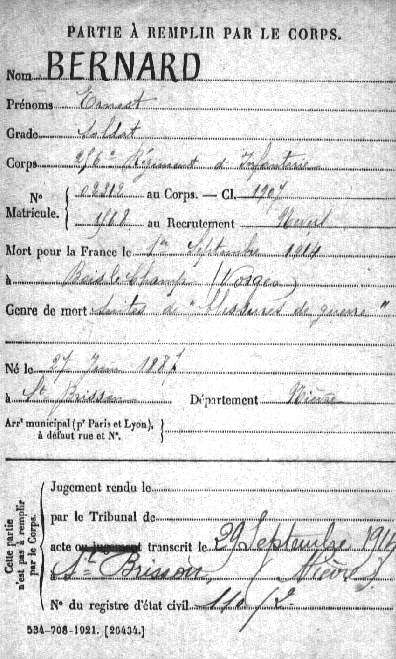 PARTIE À REMPLIR PAR LE CORPS.
Nom BERNARD
Prénoms Ernest
Grade Soldat
Corps Régiment d'Infanterie
N° Matricule. 02212 au Corps. — Cl. 1907
1568 au Recrutement Nevers
Mort pour la France le 1er Septembre 1914
à Bois le Champ (Vosges)
Genre de mort Suites de "blessures de guerre"
Né le 27 Juin 1887
à St Brisson Département Nièvre
Arrt municipal (pr Paris et Lyon), à défaut rue et N°.
Cette partie n'est pas à remplir par le Corps.
Jugement rendu le
par le Tribunal de
acte ou jugement transcrit le 29 Septembre
à St Brisson (Nièvre)
N° du registre d'état civil
534-708-1921. [26434.]